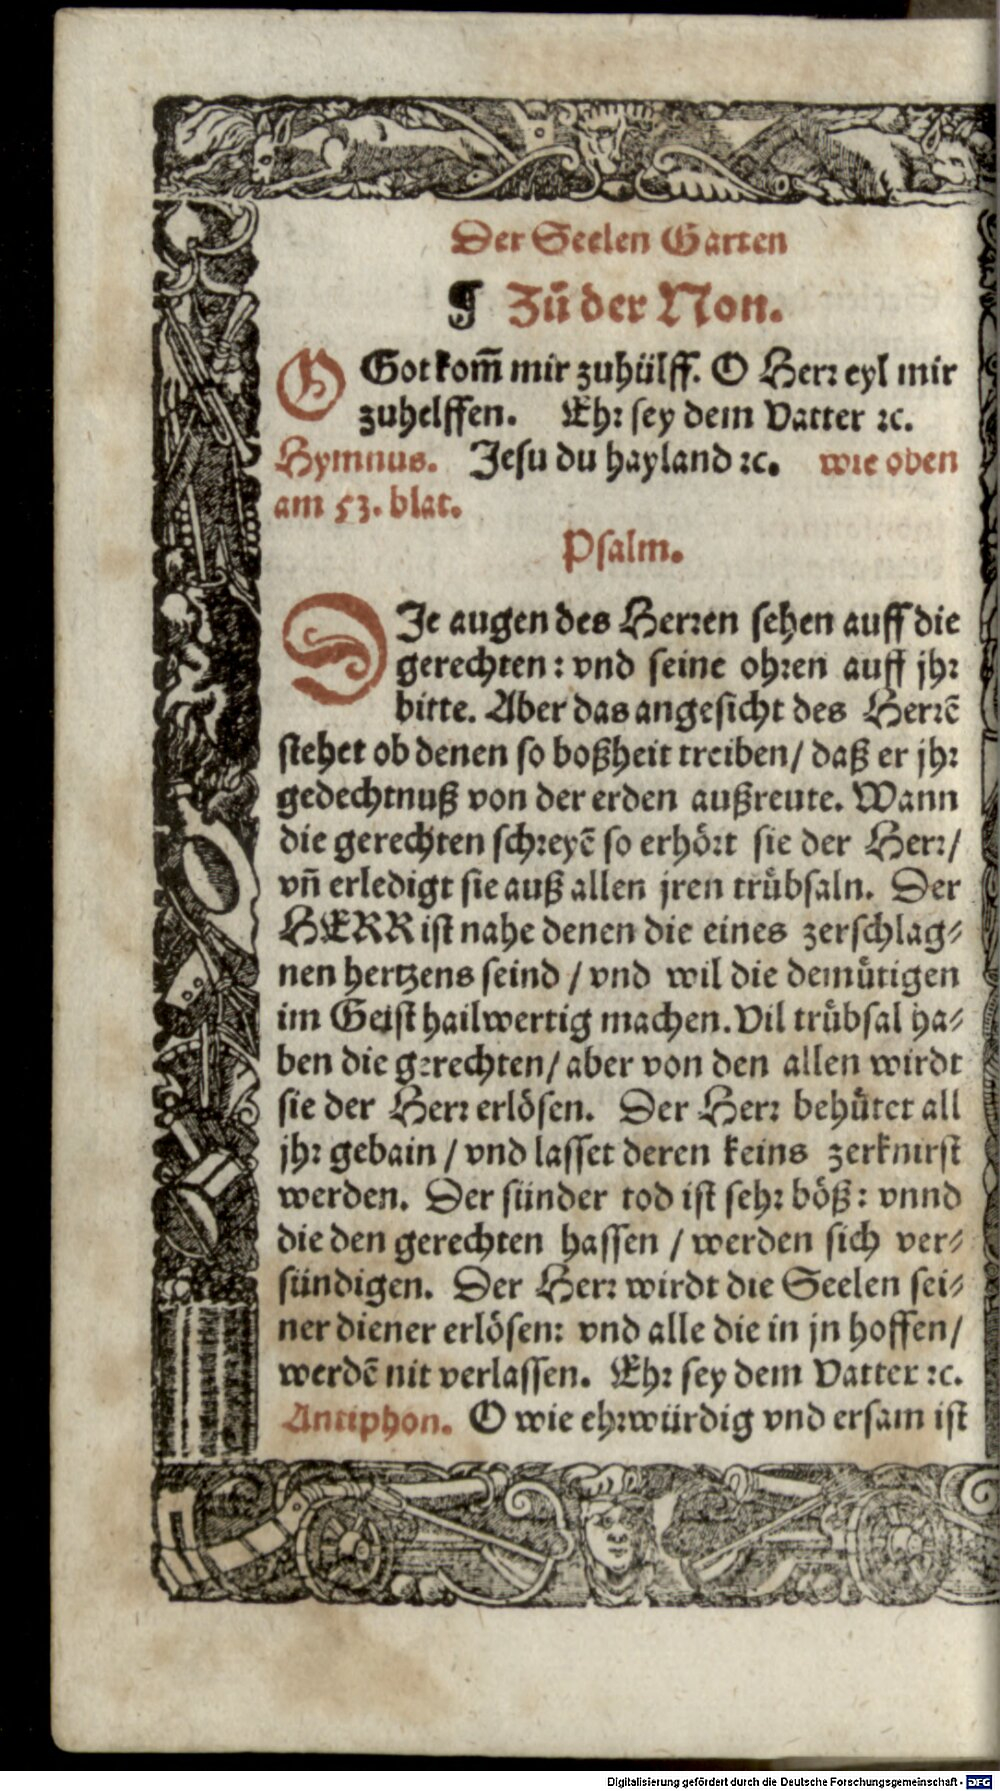 Der Seelen Garten
¶ Zů der Non.
O Got kom̃ mir zuhülff. O Herr eyl mir
zuhelffen. Ehr sey dem Vatter ꝛc.
Hymnus. Jesu du hayland ꝛc. wie oben
am 53. blat.
Psalm.
DJe augen des Herren sehen auff die
gerechten: vnd seine ohren auff jhr
bitte. Aber das angesicht des Herrẽ
stehet ob denen so boßheit treiben/ daß er jhr
gedechtnuß von der erden außreute. Wann
die gerechten schreyẽ so erhört sie der Herr/
vñ erledigt sie auß allen jren trübsaln. Der
HERR ist nahe denen die eines zerschlag⸗
nen hertzens seind / vnd wil die demütigen
im Geist hailwertig machen. Vil trübsal ha⸗
ben die gerechten/ aber von den allen wirdt
sie der Herr erlösen. Der Herr behütet all
jhr gebain / vnd lasset deren keins zerknirst
werden. Der sünder tod ist sehr böß: vnnd
die den gerechten hassen / werden sich ver⸗
sündigen. Der Herr wirdt die Seelen sei⸗
ner diener erlösen: vnd alle die in jn hoffen/
werdẽ nit verlassen. Ehr sey dem Vatter ꝛc.
Antiphon. O wie ehrwürdig vnd ersam ist
Digitalisierung gefördert durch die Deutsche Forschungsgemeinschaft - DFG